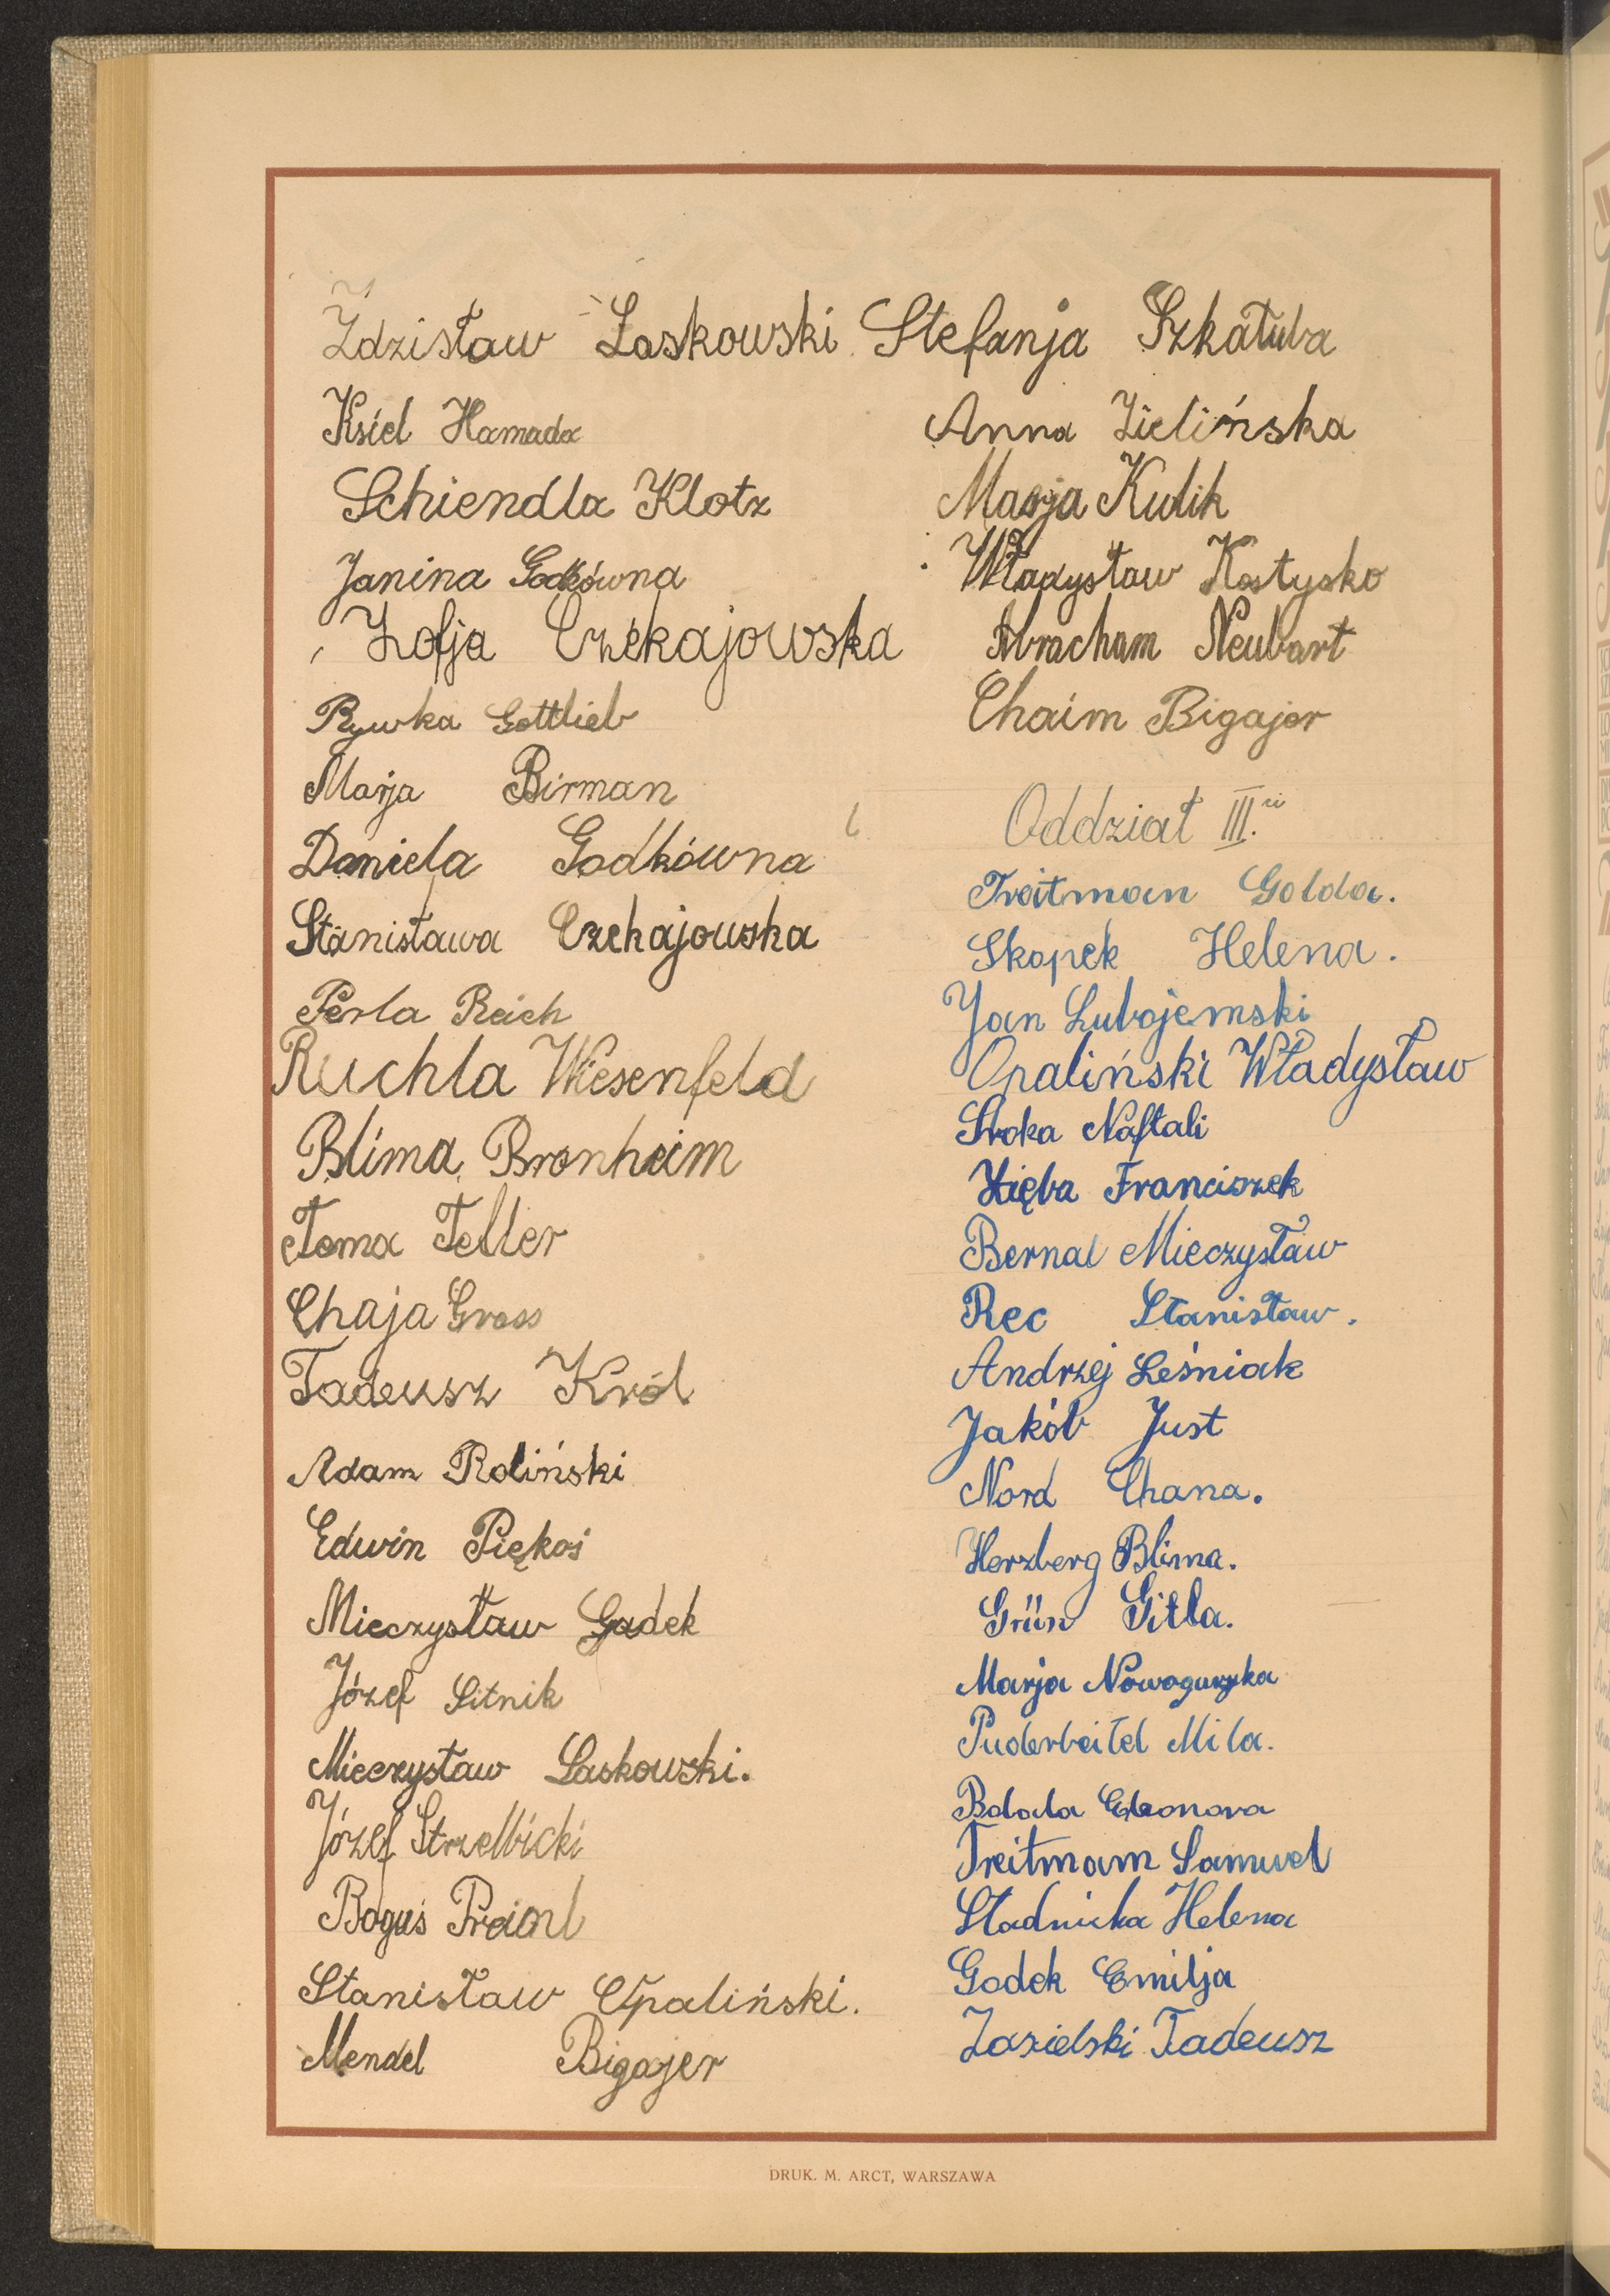 Zdzisław Laskowski
Ksiel Hamada
Schiendla Klotz
Janina Godkówna
Zofja Czekajowska
Rywka Gottlieb
Marja Birman
Daniela Godkówna
Stanisława Czekajowska
Perla Reich
Ruchla Wiesenfeld
Blima Bronheim
Toma Teller
Chaja Gross
Tadeusz Król
Adam Roliński
Edwin Piękoś
Mieczysław Gadek
Józef Sitnik
Mieczysław Laskowski.
Józef Strzelbicki
Boguś
Stanisław Opaliński.
Mendel Bigajer
Stefanja Szkatuła
Anna Zielińska
Marja Kulik
Władysław Kostysko
Abracham Neubart
Chaim Bigajer
Oddział III.ci
Treitman Golda.
Skopek Helena.
Jan Lubojemski
Opaliński Władysław
Sroka Naftali
Zięba Franciszek
Bernal Mieczysław
Rec Stanisław.
Andrzej Leśniak
Jakób Just
Nord Chana.
Herzberg Blima.
Grün Gitla.
Marja
Puderbeitel Mila.
Eleonora
Treitmam Samuel
Stadnicka Helena
Godek Emilja
Zasielski Tadeusz
DRUK. M. ARCT, WARSZAWA